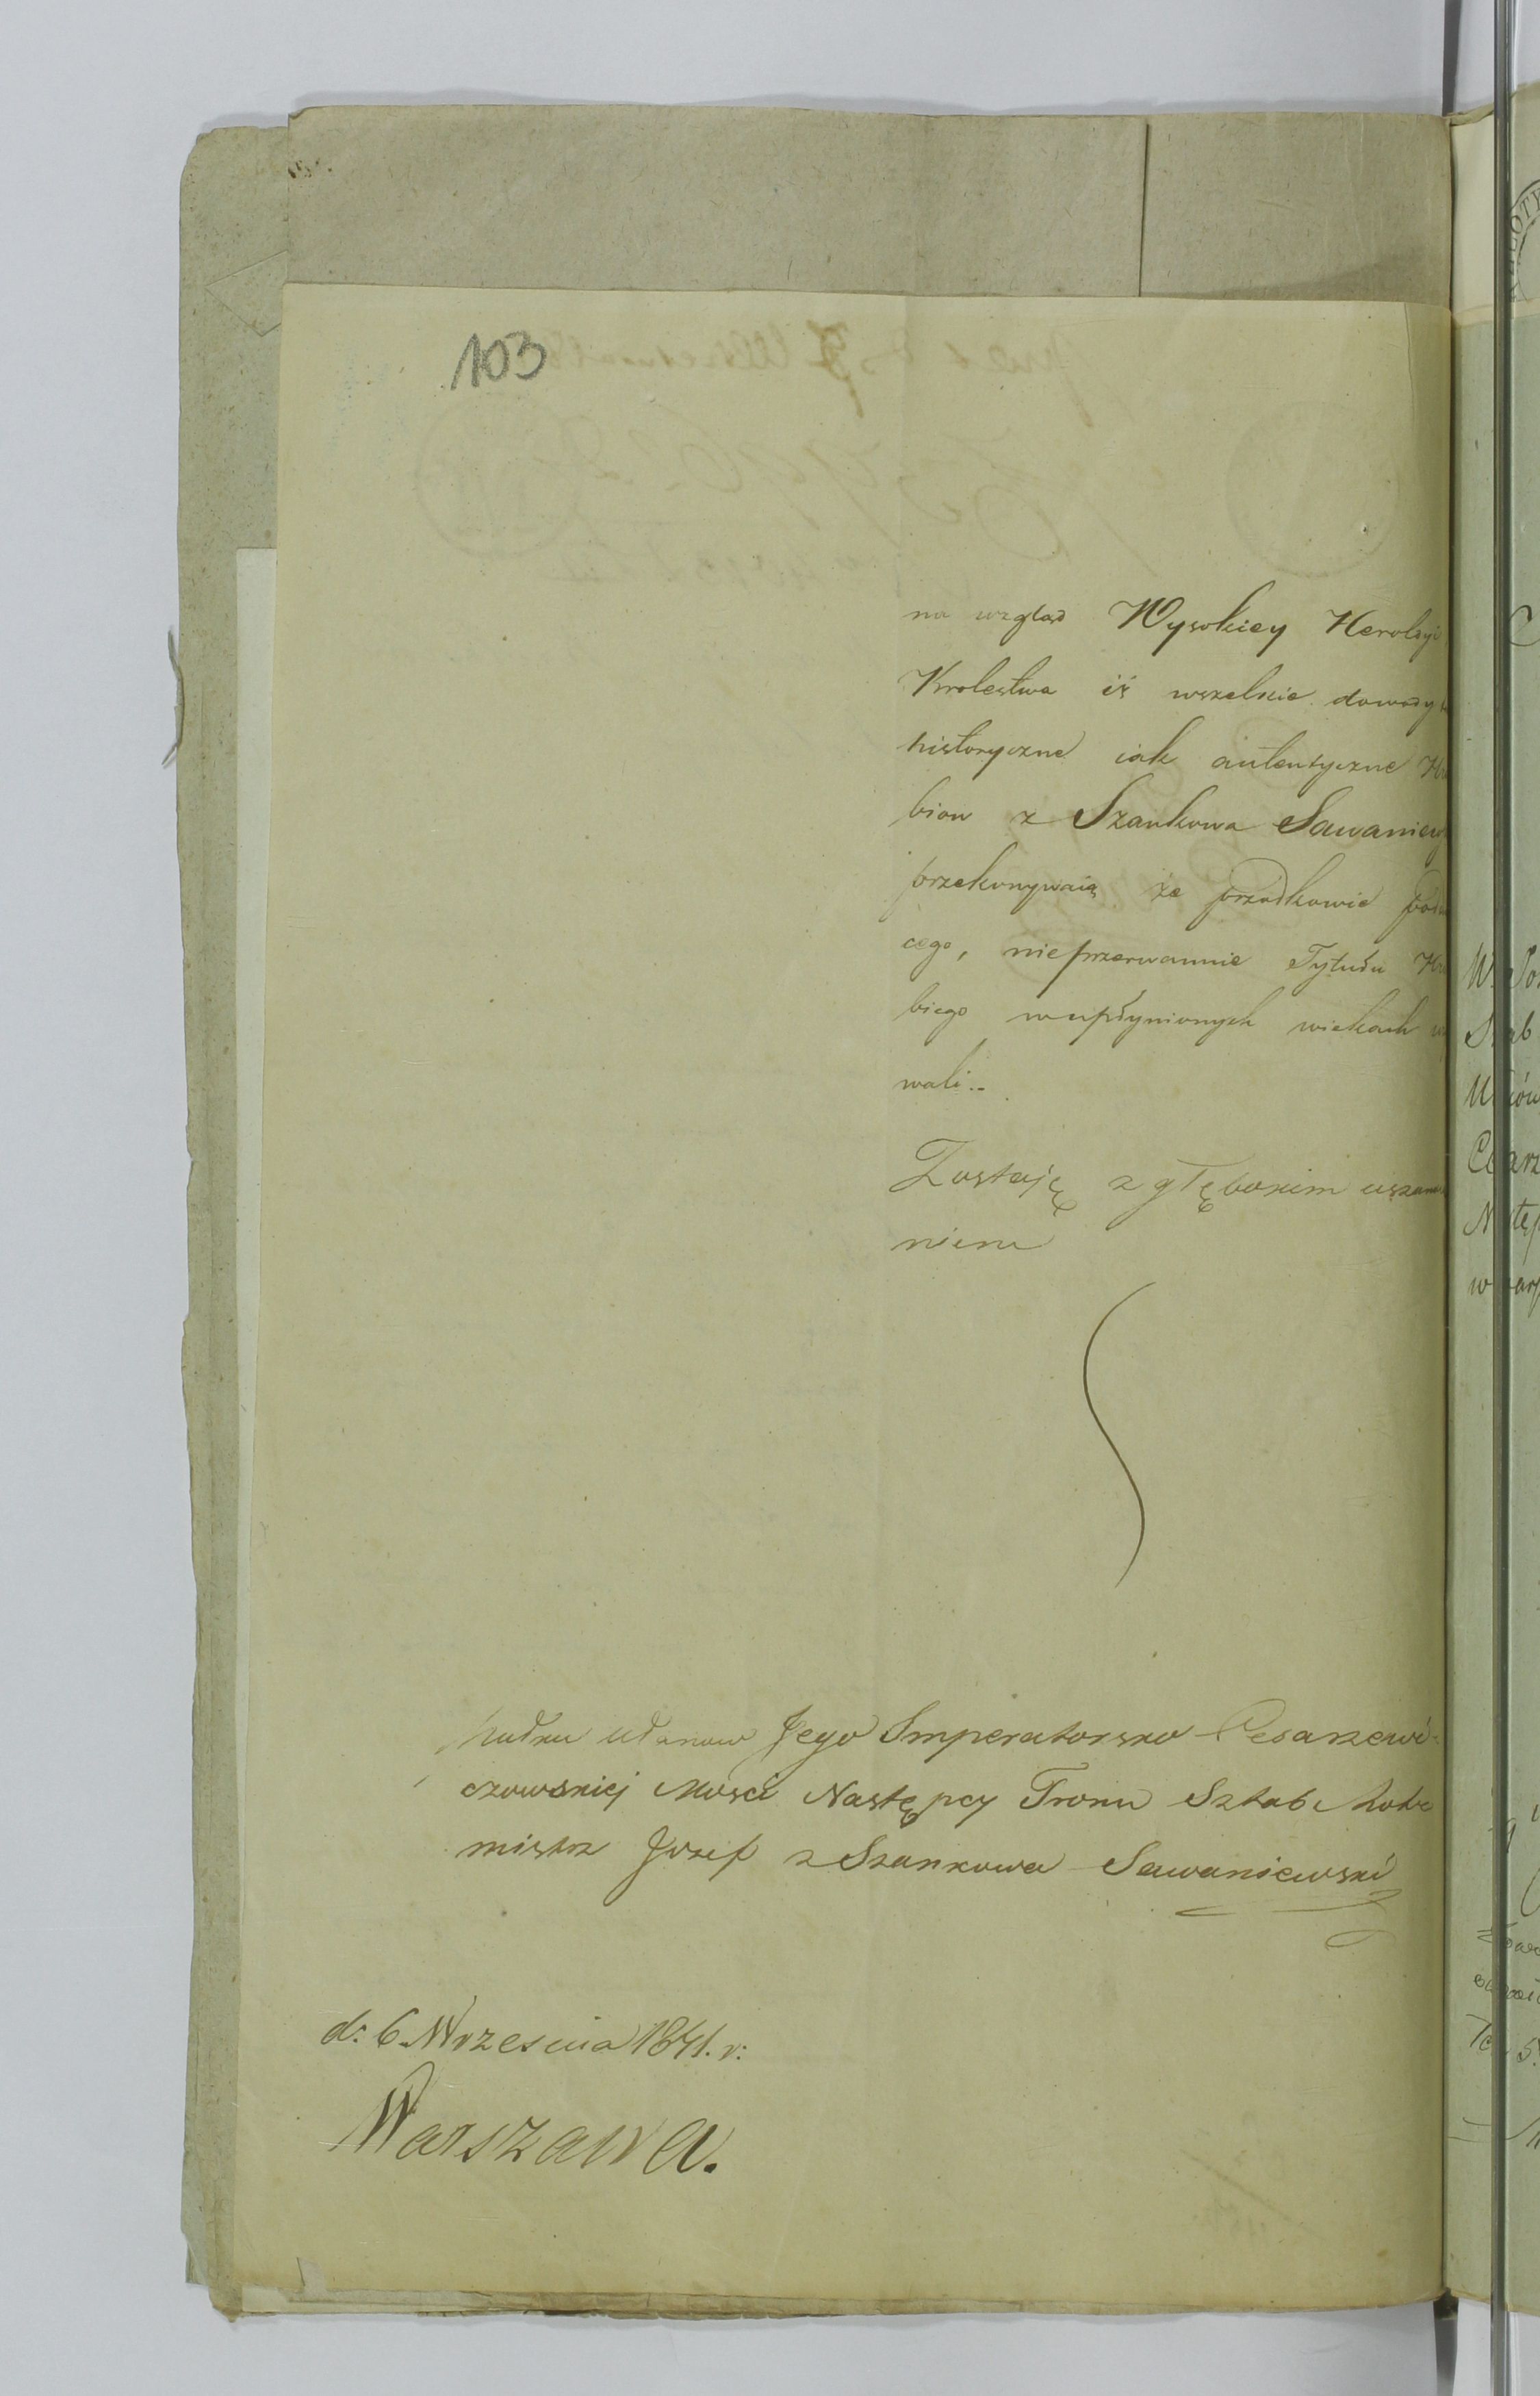 103
na wzgląd Wysokiey Heroldyi
Krolestwa iż wszelkie dowody
historyczne iak autentyczne
biow z Szankowa Sawaniew
przekonywaią że przodkowie
cego, nieprzerwannie Tytułu
biego w upłynionych wiekach
wali..
Zostaję z głębokim uszano
niem
Pułku Ułanow Jego Imperatorsko Cesarzewi-
czowskiej Mosci Następcy Tronu Sztabs Rotm
mistrz Jozef z Szankowa Sawaniewski
d: 6 Wrzesnia 1841. r:
Warszawa.